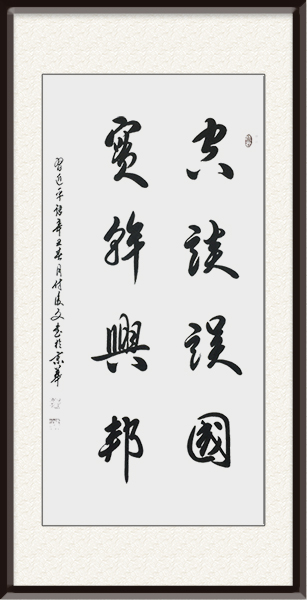 空談誤國
實幹興邦
習近平語辛丑春月付文書於京華